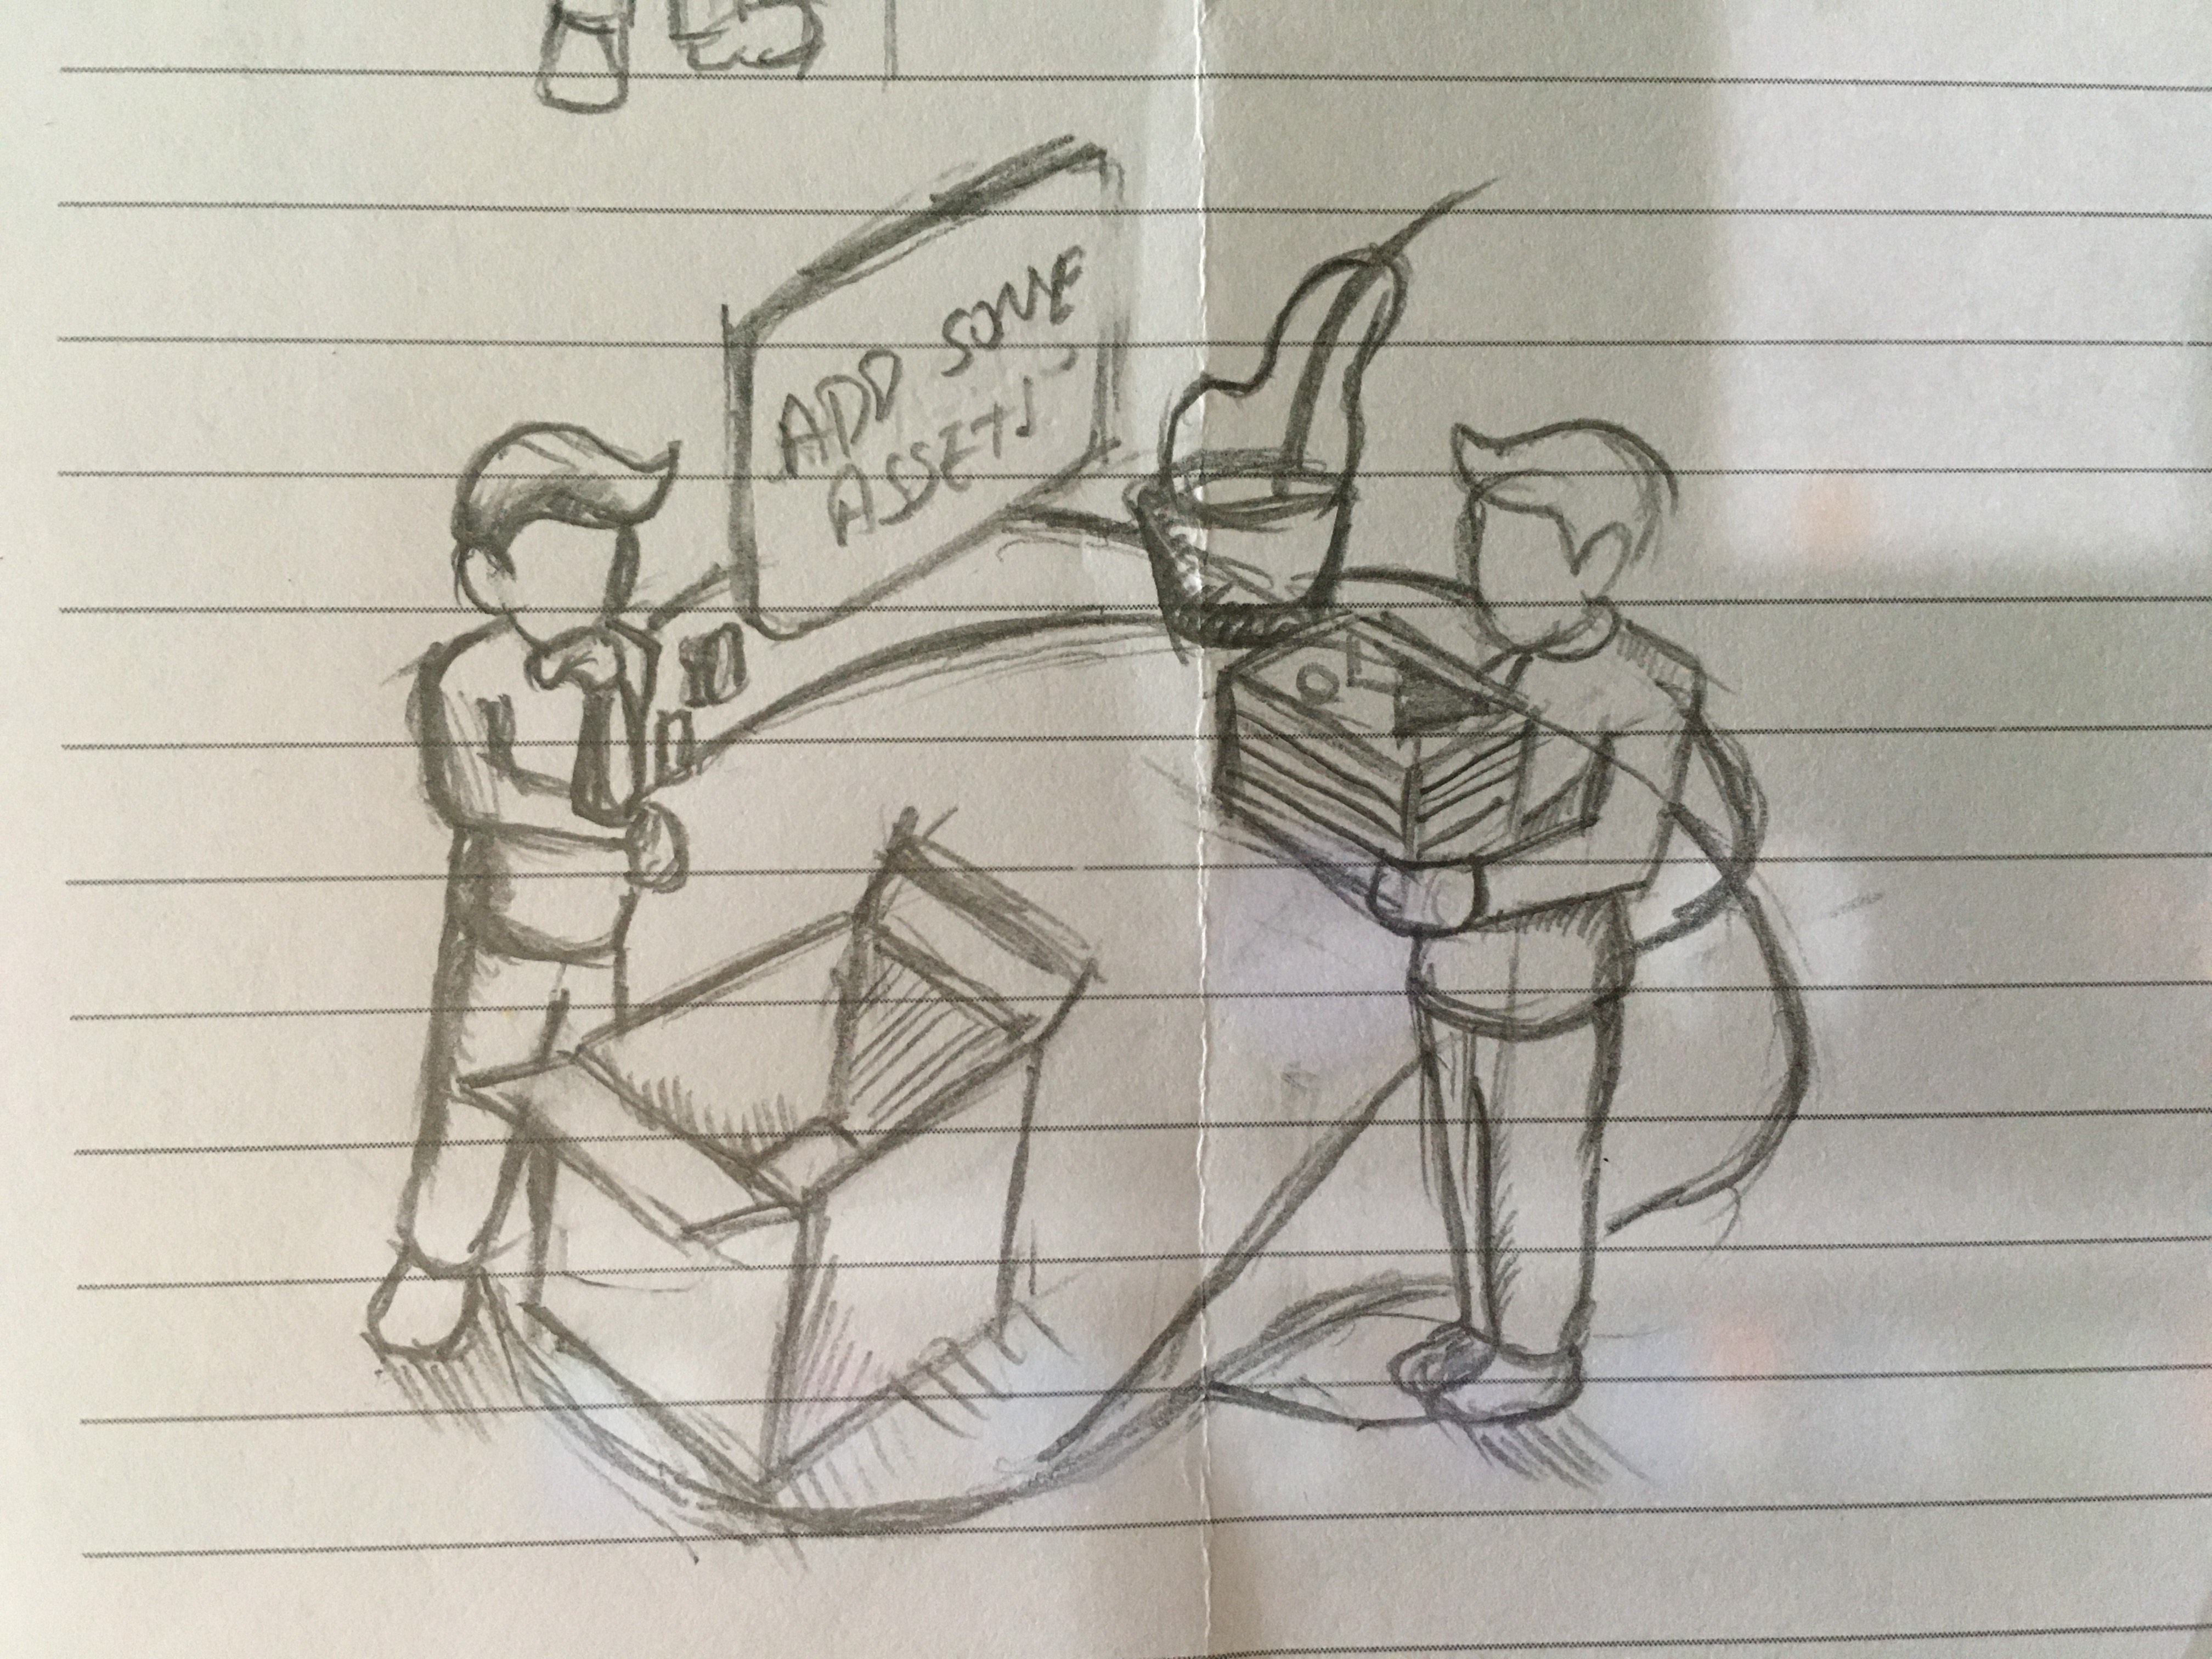 ADD SOME
ASSETS